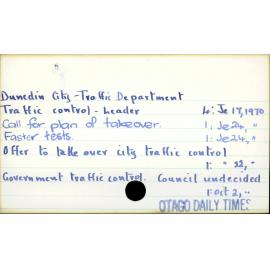 Dunedin City - Traffic Department
Traffic control - Leader 4: Je 17, 1970
Call for plan of takeover. 1: Je 24, "
Faster tests. 1: Je 24, "
Offer to take over city traffic control
1: " 22, "
Government traffic control. Council undecided
1: Oct 2, "
OTAGO DAILY TIMES